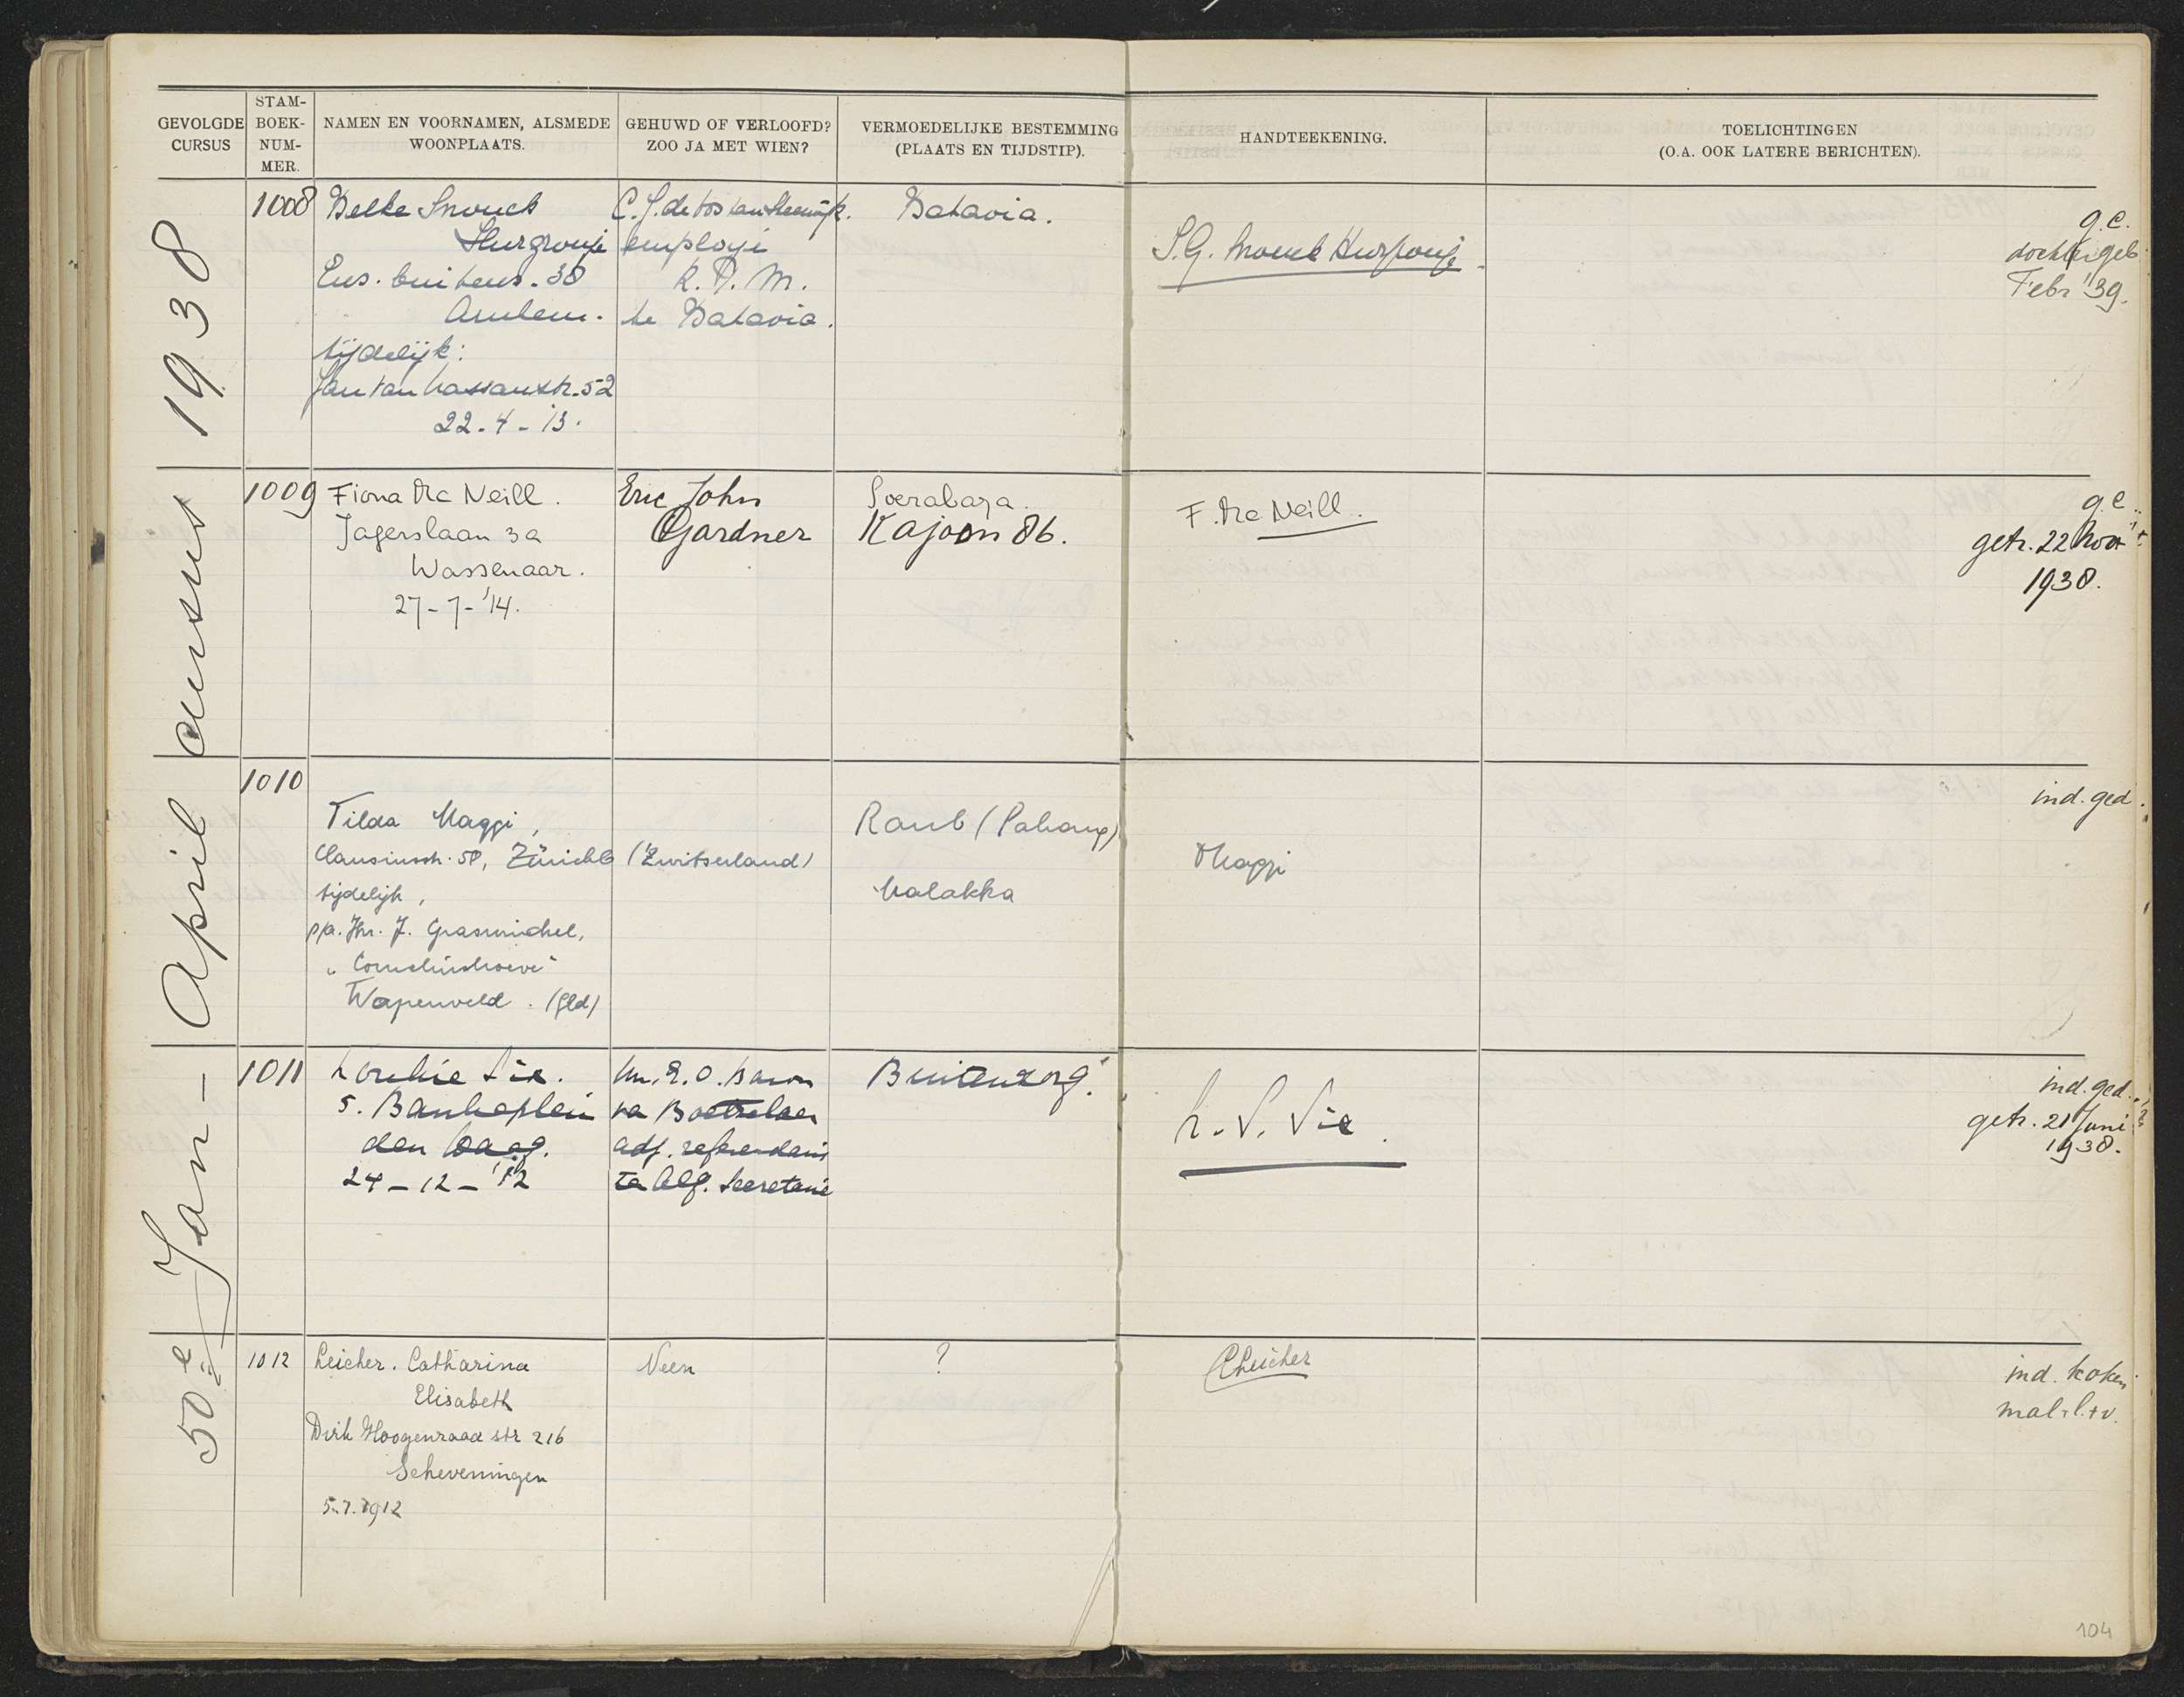 GEVOLGDE CURSUS
STAM-BOEK-NUM-MER.
NAMEN EN VOORNAMEN, ALSMEDE WOONPLAATS.
GEHUWD OF VERLOOFD? ZOO JA MET WIEN?
VERMOEDELIJKE BESTEMMING (PLAATS EN TIJDSTIP).
HANDTEEKENING.
TOELICHTINGEN (O.A. OOK LATERE BERICHTEN).
50e Jan - April cursus 1938
1008
Snouck
Hurgronje
38
tijdelijk:
52
22-4-'13.
employé
K.P.M.
te Batavia.
Batavia.
S.G. Snouck Hurgronje
g.c.
dochter geb.
Febr '39.
1009
Fiona Mc Neill.
Jagerslaan 3a
Wassenaar.
27-7-'14.
Eric John
Gardner
Soerabaja.
Kajoon 86.
F. Mc Neill.
g.c.
getr. 22 Nov.
1938.
1010
Tilda Maggi,
Clausiusstr. 50, Zürich 6 (Zwitserland)
tijdelijk,
p/a. Jhr. J.
"Corneliushoeve"
Wapenveld. (Gld)
Raub (Pahang)
Malakka
Maggi
ind. ged.
1011
Loukie Six.
5. Bankaplein
den Haag.
24-12-'12
Mr. E.O. Baron
van Boetzelaer
adj. referendaris
Alg. Secretarie
Buitenzorg.
L.S. Six.
ind. ged.
getr. 21 Juni
1938.
1012
Leicher. Catharina
Elisabeth
Dirk Hoogenraad str 216
Scheveningen
5.7.1912
Neen
?
CLeicher
ind. koken
mal. l.+v.
104